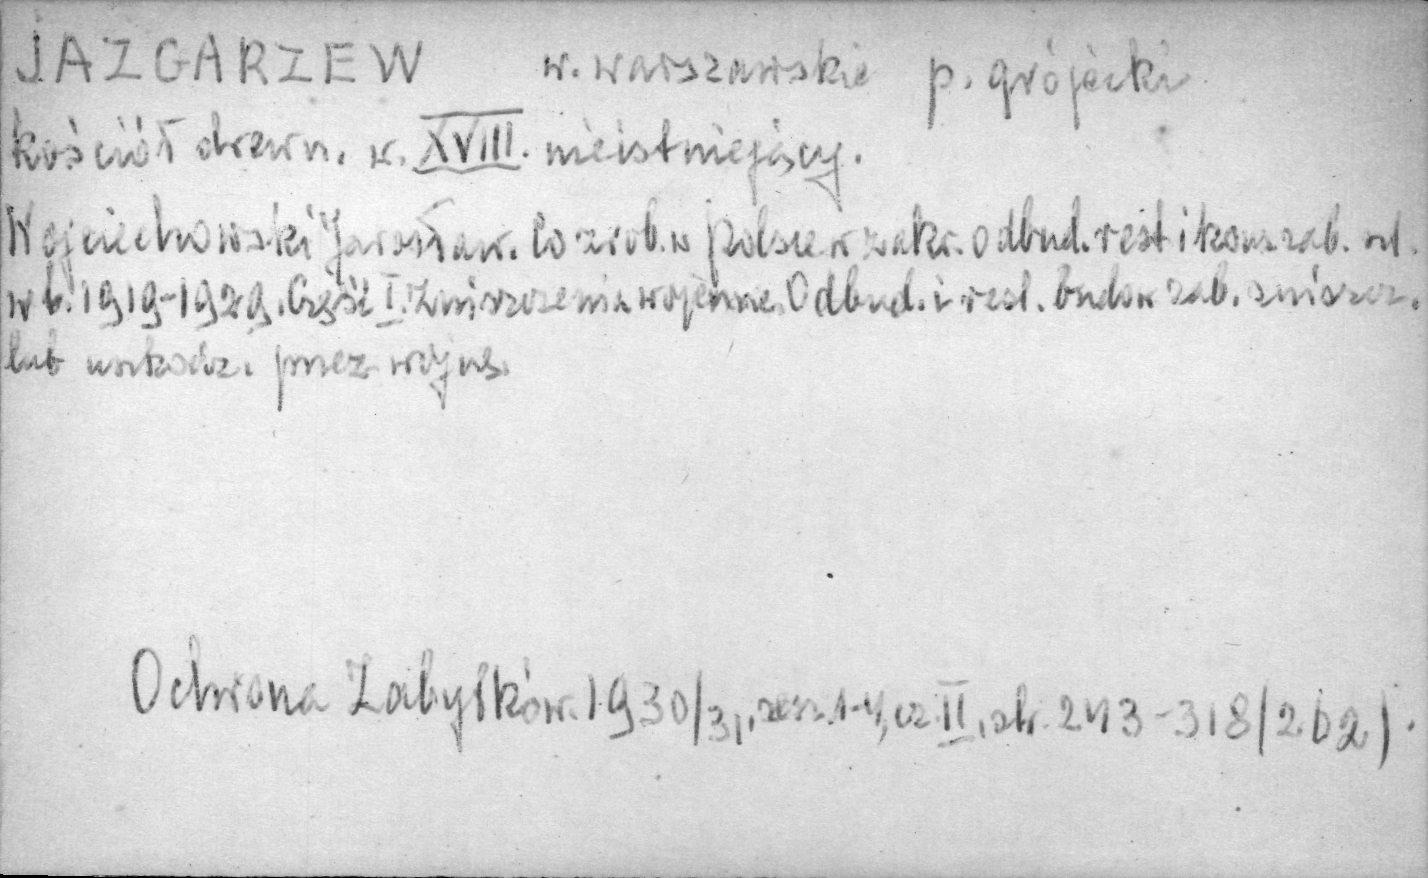 JAZGARZEW w. warszawskie p. grójecki
kościół drewn. w. XVIII. nieistniejący.
Wojciechowski Jarosław. Co zrob. w Polsce w zakr. odbud. rest i kons zab. od.
w l. 1919-1929. Część I. Zniszczenia wojenne. Odbud. i rest. budow zab. zniszcz.
lub uszkodz. przez wojnę.
Ochrona Zabytków. 1930/31, zesz. 1-4, cz II, str. 243-318 (262).